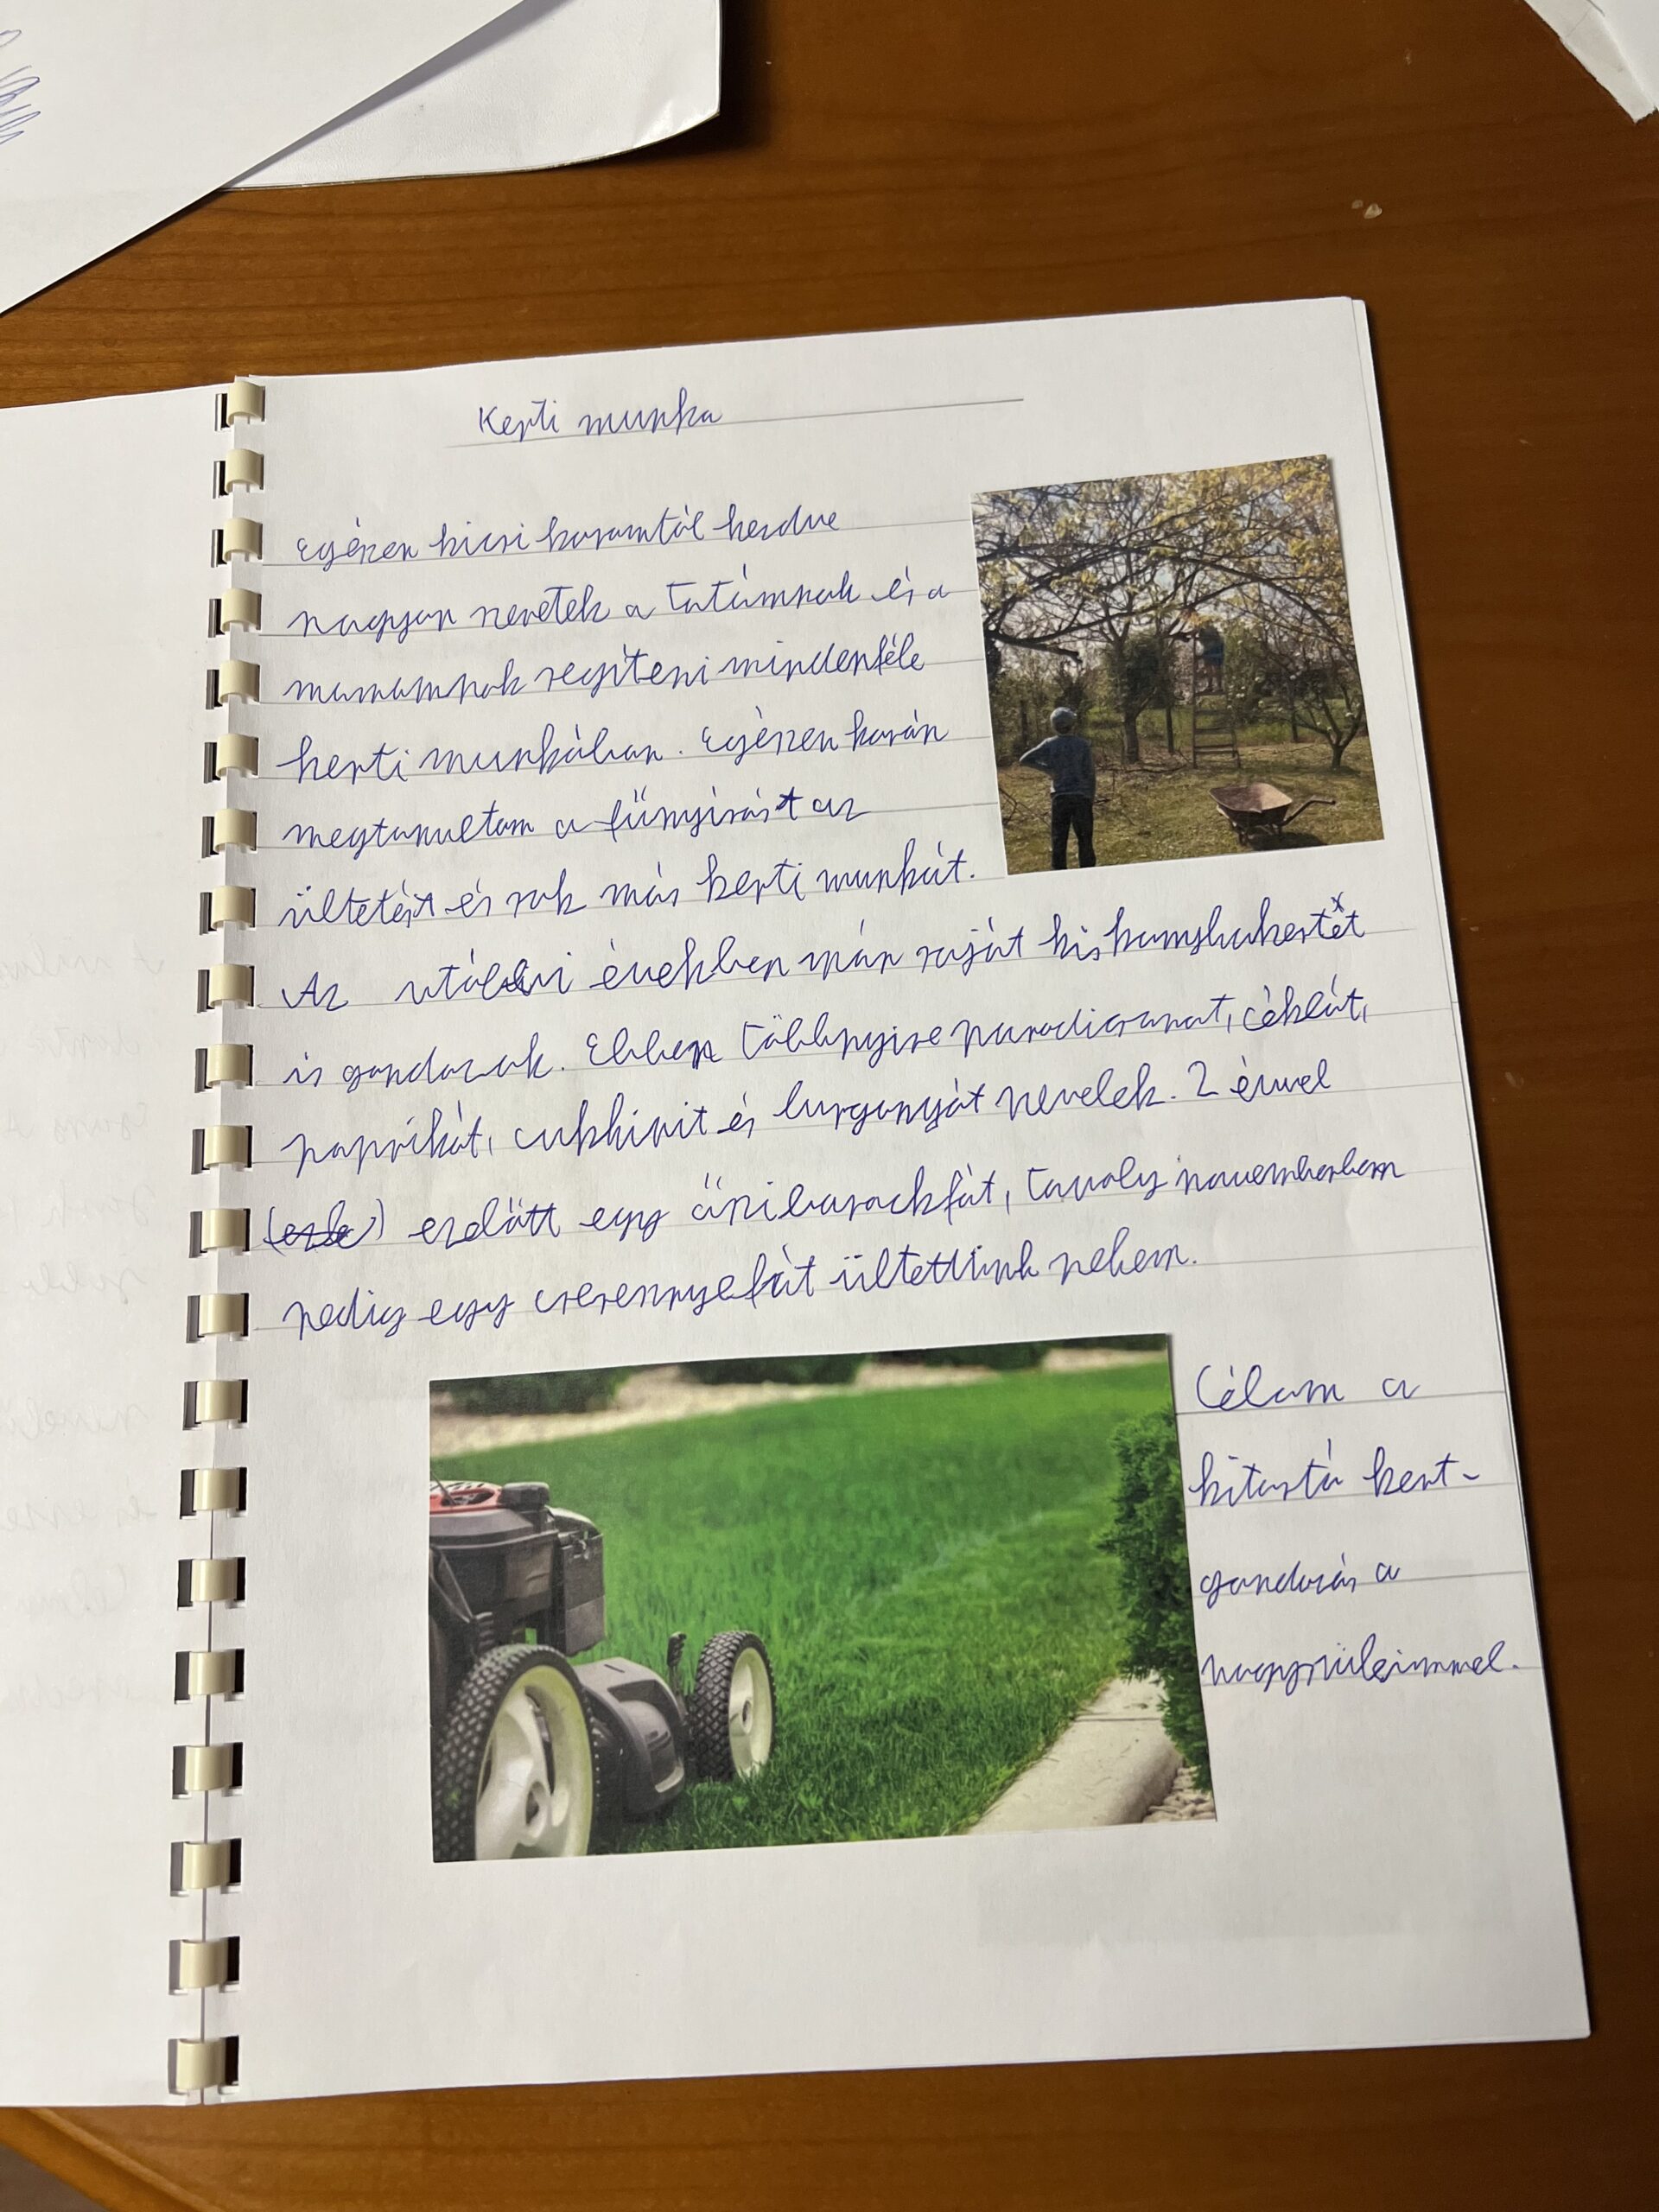 Kerti munka
Egészen kicsi koromtól kezdve
nagyon szeretek a tatámnak és a
mamámnak segíteni mindenféle
kerti munkában. Egészen korán
megtanultam a fűnyírást az
ültetést és sok más kerti munkát.
Az utóbbi években már saját kis konyhakertet
is gondozok. Ebben többnyire paradicsomot, céklát,
paprikát, cukkinit és burgonyát nevelek. 2 évvel
(ezle) ezelőtt egy őszibarackfát, tavaly novemberben
pedig egy cseresznyefát ültettünk nekem.
Célom a
kitartó kert-
gondozás a
nagyszüleimmel.